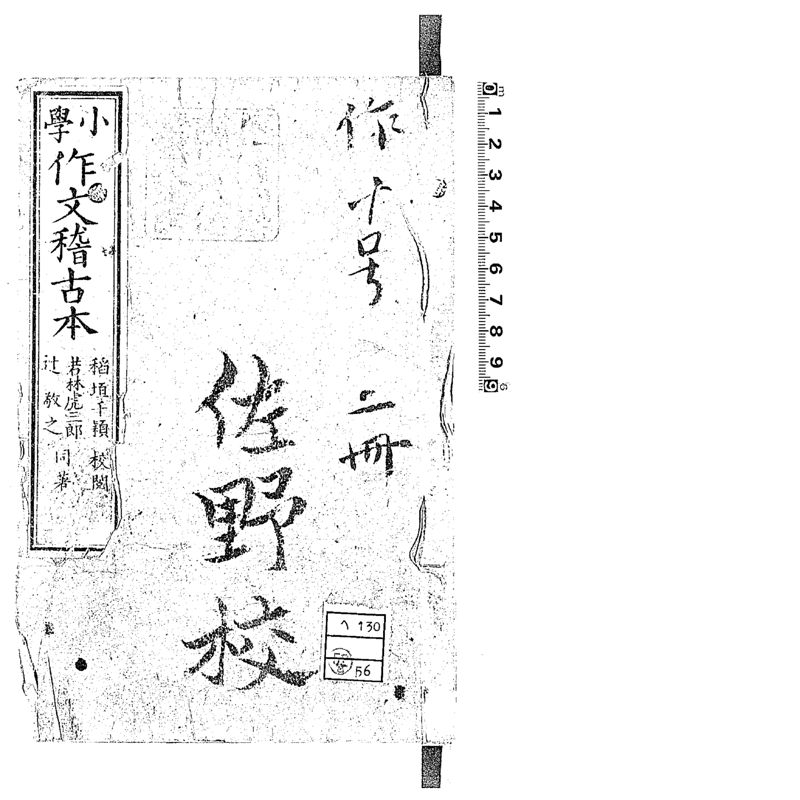 作十号 二冊
佐野校
小學 作文稽古本
稲垣千穎 校閲
若林虎三郎
辻敬之 同著
ヘ 130
56
0 1 2 3 4 5 6 7 8 9